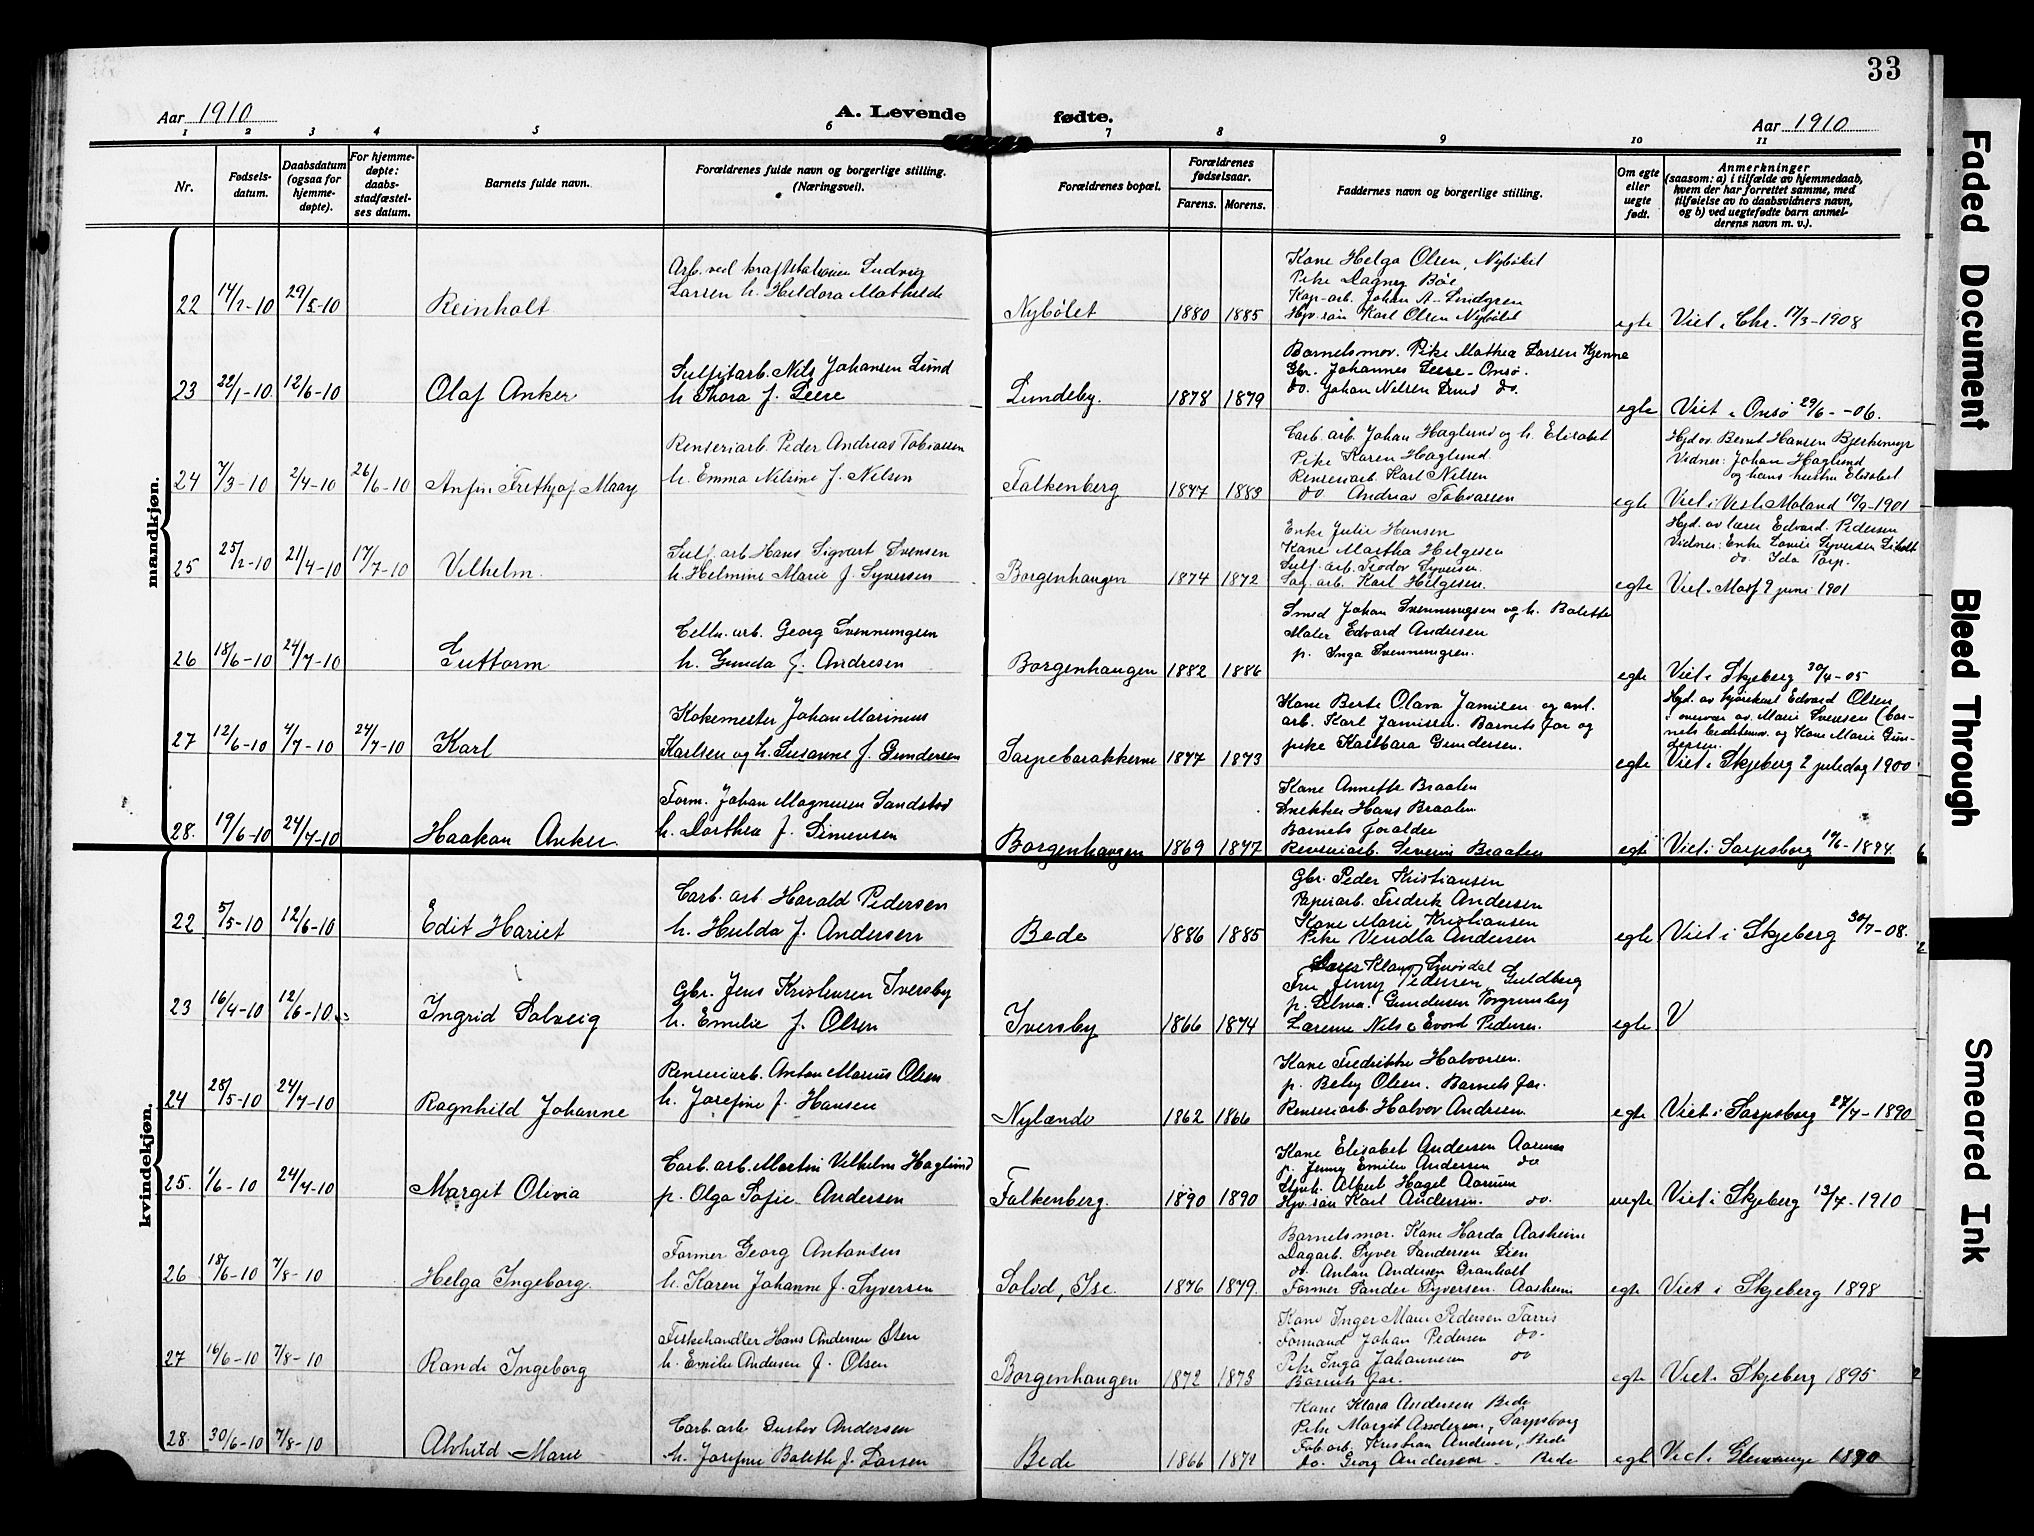 33
Aar 1910
A. Levende fødte.
Aar 1910
1 2 3 4 5 6 7 8 9 10 11
Nr.
Fødsels-
datum.
Daabsdatum
(ogsaa for
hjemme-
døpte).
For hjemme-
døpte:
daabs-
stadfæstel-
ses datum.
Barnets fulde navn.
Forældrenes fulde navn og borgerlige stilling.
(Næringsvei).
Forældrenes bopæl.
Forældrenes
fødselsaar.
Farens. Morens.
Faddernes navn og borgerlige stilling.
Om egte
eller
uegte
født.
Anmerkninger
(saasom: a) i tilfælde av hjemmedaab,
hvem der har forrettet samme, med
tilføielse av to daabsvidners navn,
og b) ved uegtefødte barn anmel-
derens navn m. v.).
mandkjøn.
22 14/2-10 29/5-10 Reinholt
Arb. ved kraftstationen Ludvig
Larsen h. Heldora Mathilde
Nybølet 1880 1885
Kone Helga Olsen, Nybølet
Pike Dagny Bøe
Kap-arb. Johan A. Lindgren
Gjv. søn Karl Olsen Nybølet
egte Viet i Chr. 17/3-1908
23 22/1-10 12/6-10 Olaf Anker
Sulfitarb. Nils Johansen Lund
h. Thora f. Leere
Lundeby. 1878 1879
Barnets mor. Pike Mathea Larsen Kjenne
Gbr. Johannes Leere - Onsø.
do. Johan Nilsen Lund do.
egte Viet i Onsø 29/6 -06.
24 7/3-10 2/4-10 26/6-10 Anfin Frethjof Maay
Renseriarb. Peder Andreas Tobiassen
h. Emma Nilsine f. Nilsen
Falkenberg 1877 1883
Carb. arb. Johan Haglund og h. Elisabet
Pike Karen Haglund
Renseriarb. Karl Nilsen
do Andreas Tobiassen
egte
Hjd. av. Bernt Hansen Bjerkemyr
Vidner: Johan Haglund
og hans hustru Elisabet
Viet i Vestr. Moland 10/9-1901
25 25/2-10 21/4-10 17/7-10 Vilhelm.
Sulf. arb. Hans Sigvart Svensen
h. Helmine Marie f. Syversen
Borgenhaugen 1874 1872
Enke Julie Hansen
Kone Martha Helgesen
Sulf. arb. Teodor Syversen.
Sag. arb. Karl Helgesen.
egte
Hjd. av lærer Edvard Pedersen
Vidner: Enke Lovise Syversen
do. Ida Torp.
Viet i 2 juni 1901
26 18/6-10 24/7-10 Guttorm
Cellu. arb. Georg Svenningsen
h. Gunda f. Andresen
Borgenhaugen 1882 1886
Smed Johan Svenningsen og h. Bolette
Maler Edvard Andresen
p. Inga Svenningsen.
egte Viet i Skjeberg 30/4-05
27 12/6-10 4/7-10 24/7-10 Karl
Kokemester Johan Marinius
Karlsen og h. Susanne f. Gundersen
Sarpebarakkerne 1877 1873
Kone Berte Olava Jamisen og ant.
arb. Karl Jamissen. Barnets far og
pike Kaltbara Gundersen.
egte
Hjd. av kjørekarl Edvard Olsen
i overvær av Marie Svensen (bar-
nets bedstemor og Kone Marie Gun-
dersen.
Viet i Skjeberg 2 juledag 1900
28. 19/6-10 24/7-10 Haakon Anker.
Form. Johan Magnusen Sandstød
h. Dorthea f. Simensen
Borgenhaugen 1869 1877
Kone Annette Braaten
Snekker Hans Braaten
Barnets forældre
Renseriarb. Severin Braaten
egte Viet i Sarpsborg 19/6-1894.
kvindekjøn.
22 5/5-10 12/6-10 Edit Hariet
Carb. arb Harald Pedersen
h. Hulda f. Andersen
Bede 1886 1885
Gbr. Peder Kristiansen
Papirarb. Fredrik Andersen
Kone Marie Kristiansen
Pike Vendla Andersen
egte Viet i Skjeberg 30/7-08.
23 16/4-10 12/6-10 Ingrid Solveig
Gbr. Jens Kristensen Iversby
h. Emilie f. Olsen
Iversby 1866 1874
Lærer Klaus Smørdal
Fru Jenny Pedersen Guldberg
p. Selma Gundersen Torgrimsby
Lærerne Nils o Evard Pedersen.
egte V
24 28/5-10 24/7-10 Ragnhild Johanne
Renseriarb. Anton Marius Olsen
h. Josefine f. Hansen
Nylænde 1862 1866
Kone Fredrikke Halvorsen.
p. Betsy Olsen. Barnets far.
Renseriarb. Halvor Andersen.
egte Viet i Sarpsborg 27/7-1890
25. 1/6-10 24/7-10 Margit Olivia
Carb. arb. Martin Vilhelm Haglund
p. Olga Sofie Andersen
Falkenberg. 1890 1890
Kone Elisabet Andersen Aarum
p. Jenny Emilie Andersen do
Albert Hagel Aarum
Gjv. søn Karl Andersen. do.
uegte Viet i Skjeberg 13/7-1910
26 18/6-10 7/8-10 Helga Ingeborg.
Former Georg Antonsen
h. Karen Johanne f. Syversen
Solvd, Ise. 1876 1879.
Barnets mor. Kone Harda Aasheim
Dagarb. Syver Sandersen Lien
do. Anton Andersen Granholt
Former Sander Syversen. Aasheim
egte Viet i Skjeberg 1898
27 16/6-10 7/8-10 Randi Ingeborg
Fiskehandler Hans Andersen Sten
h. Emilie Andersen f. Olsen
Borgenhaugen 1872 1873
Kone Inger Marie Pedersen Tarris
Formand Johan Pedersen do.
Pike Inga Johannesen do
Barnets far.
egte Viet i Skjeberg 1895
28. 30/6-10 7/8-10 Alvhild Marie
Carb. arb. Gustav Andersen
h. Josefine Bolette f. Larsen
Bede 1866 1871
Kone Klara Andersen Bede
Pike Margit Andersen, Sarpsborg
Fab. arb. Kristian Andersen, Bede
do. Georg Andersen - Bede
egte Viet i Glemminge 1890
Faded Document
Bleed Through
Smeared Ink